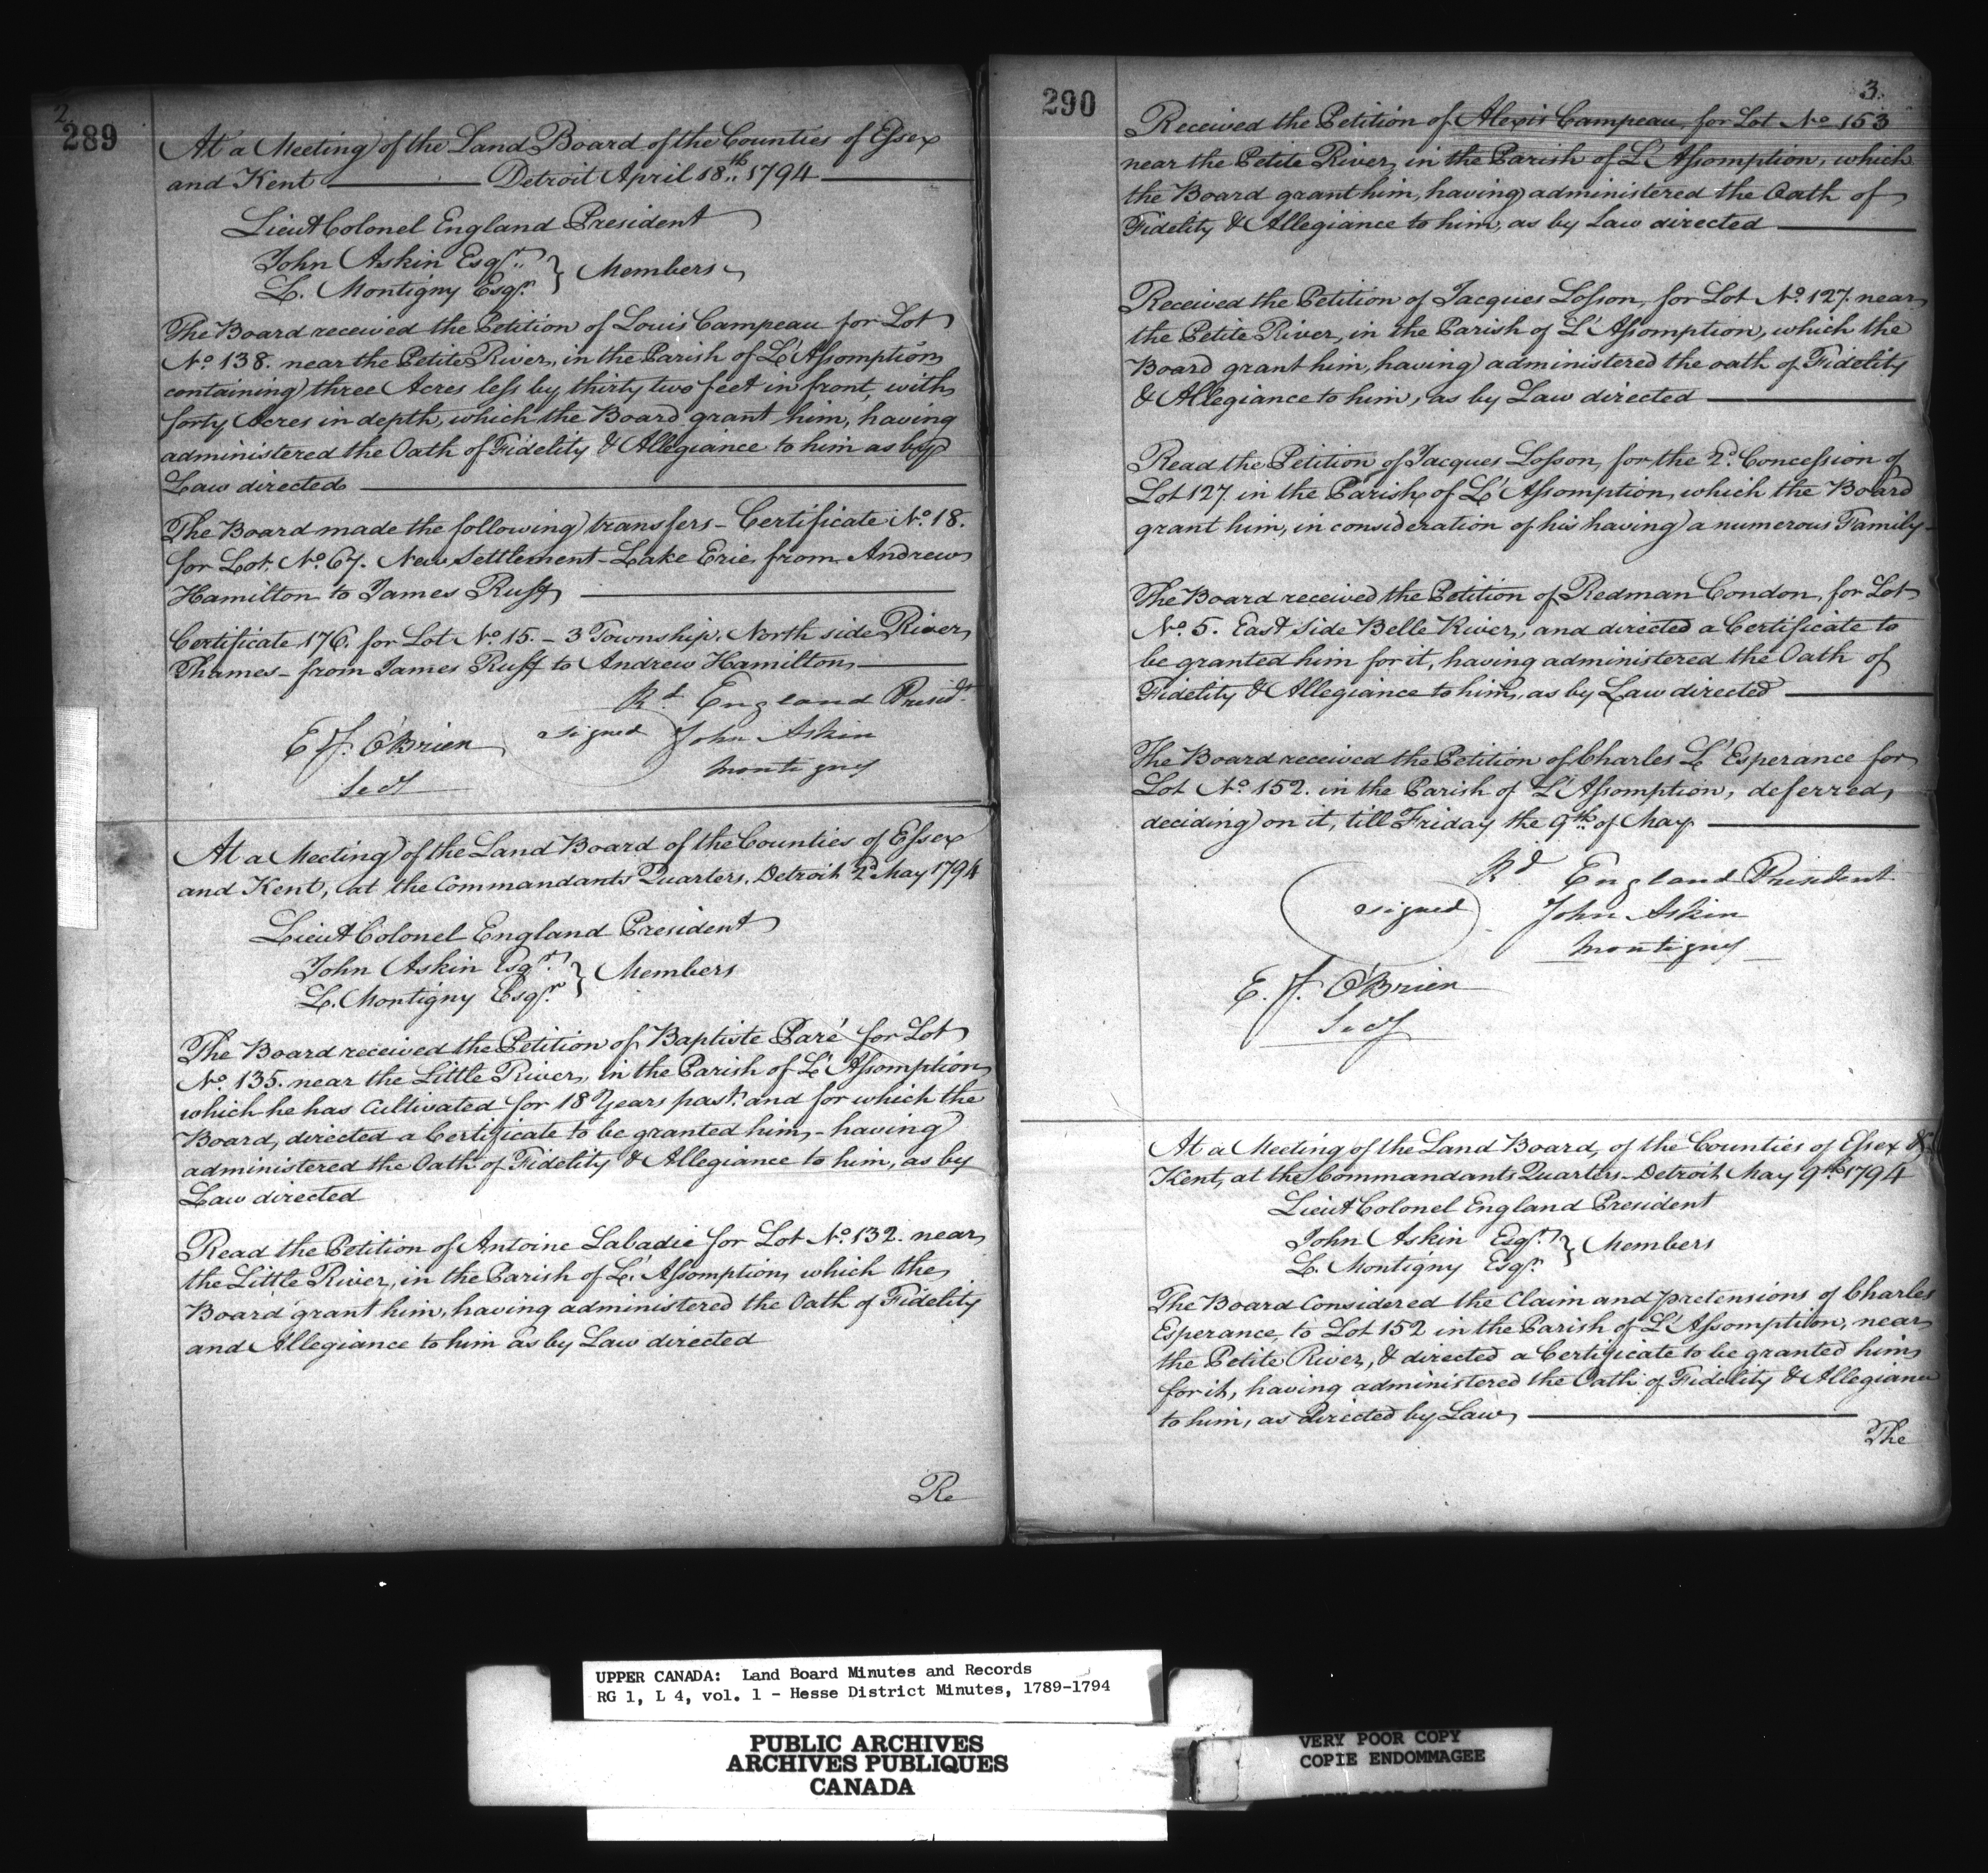 2.
289
At a Meeting of the Land Board of the Counties of Essex
and Kent — Detroit April 18th 1794
Lieut Colonel England President
John Askin Esqr.
L. Montigny Esqr. } Members
The Board received the Petition of Louis Campeau for Lot
No 138. near the Petite River, in the Parish of L'Assomption
containing three Acres less by thirty two feet in front, with
forty Acres in depth, which the Board grant him, having
administered the Oath of Fidelity & Allegiance to him as by
Law directed
The Board made the following transfers - Certificate No. 18.
for Lot. No. 67. New Settlement - Lake Erie from Andrew
Hamilton to James Ruff
Certificate 176. for Lot No 15. - 3 Township. North side River
Thames - from James Ruff to Andrew Hamilton
Rd England Presidt.
signed John Askin
E. J. O'Brien
Montigny
Secy
At a Meeting of the Land Board of the Counties of Essex
and Kent, at the Commandants Quarters. Detroit 2d May 1794
Lieut Colonel England President
John Askin Esqr.
L. Montigny Esqr. } Members
The Board received the Petition of Baptiste Paré for Lot
No. 135. near the Little River, in the Parish of L'Assomption
which he has Cultivated for 18 Years past. and for which the
Board, directed a Certificate to be granted him, - having
administered the Oath of Fidelity & Allegiance to him, as by
Law directed
Read the Petition of Antoine Labadie for Lot No. 132. near
the Little River, in the Parish of L'Assomption, which the
Board grant him, having administered the Oath of Fidelity
and Allegiance to him as by Law directed
Re
290
3.
Received the Petition of Alexis Campeau, for Lot No 153
near the Petite River, in the Parish of L'Assomption, which
the Board grant him, having administered the Oath of
Fidelity & Allegiance to him, as by Law directed
Received the Petition of Jacques Losson, for Lot No. 127. near
the Petite River, in the Parish of L'Assomption, which the
Board grant him, having administered the oath of Fidelity
& Allegiance to him, as by Law directed
Read the Petition of Jacques Losson, for the 2d. Concession of
Lot 127. in the Parish of L'Assomption, which the Board
grant him, in consideration of his having a numerous Family -
The Board received the Petition of Redman Condon, for Lot
No. 5. East Side Belle River, and directed a Certificate to
be granted him for it, having administered the Oath of
Fidelity & Allegiance to him, as by Law directed
The Board received the Petition of Charles L'Esperance for
Lot No. 152. in the Parish of L'Assomption, deferred,
deciding on it, till Friday the 9th of May
Rd England President
signed John Askin
Montigny
E. J. O'Brien
Secy
At a Meeting of the Land Board, of the Counties of Essex &
Kent, at the Commandants Quarters - Detroit May 9th 1794
Lieut Colonel England President
John Askin Esqr.
L. Montigny Esqr. } Members
The Board Considered the Claim and pretensions of Charles
Esperance, to Lot 152 in the Parish of L'Assomption, near
the Petite River, & directed a Certificate to be granted him,
for it, having administered the Oath of Fidelity & Allegiance
to him, as directed by Law,
The
UPPER CANADA: Land Board Minutes and Records
RG 1, L 4, vol. 1 - Hesse District Minutes, 1789-1794
PUBLIC ARCHIVES
ARCHIVES PUBLIQUES
CANADA
VERY POOR COPY
COPIE ENDOMMAGEE